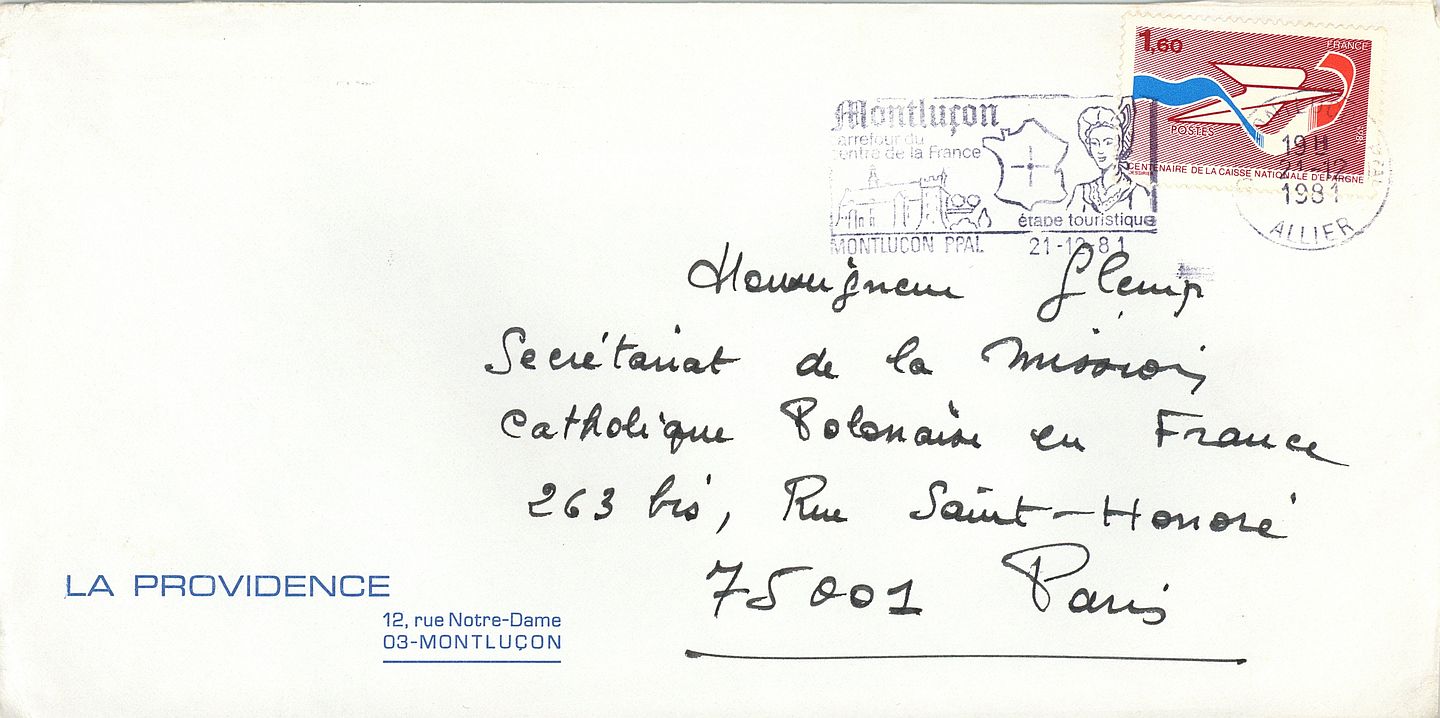 1,60
FRANCE
POSTES
CENTENAIRE DE LA CAISSE NATIONALE D'ÉPARGNE
Montluçon
carrefour du
centre de la France
étape touristique
MONTLUCON PPAL 21-12-81
19H
21-12
1981
ALLIER
Monseigneur Glemp
Secrétariat de la Mission
Catholique Polonaise en France
263 bis, Rue Saint-Honoré
75001 Paris
LA PROVIDENCE
12, rue Notre-Dame
03-MONTLUÇON